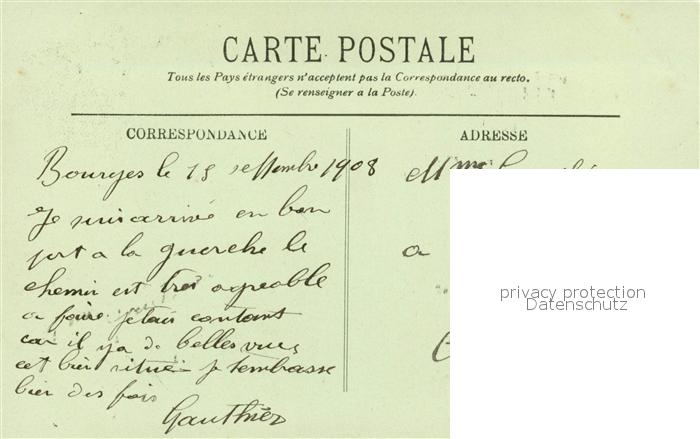 CARTE POSTALE
Tous les Pays étrangers n'acceptent pas la Correspondance au recto.
(Se renseigner a la Poste)
CORRESPONDANCE
ADRESSE
Bourges le 15 septembre 1908
Je suis arrivé en bon
port a la guerche le
chemin est tres agreable
a faire jetais contant
car il ya de belles vues
cet bien situé je tembrasse
bien des fois
Gauthier
Mme
a
privacy protection
Datenschutz